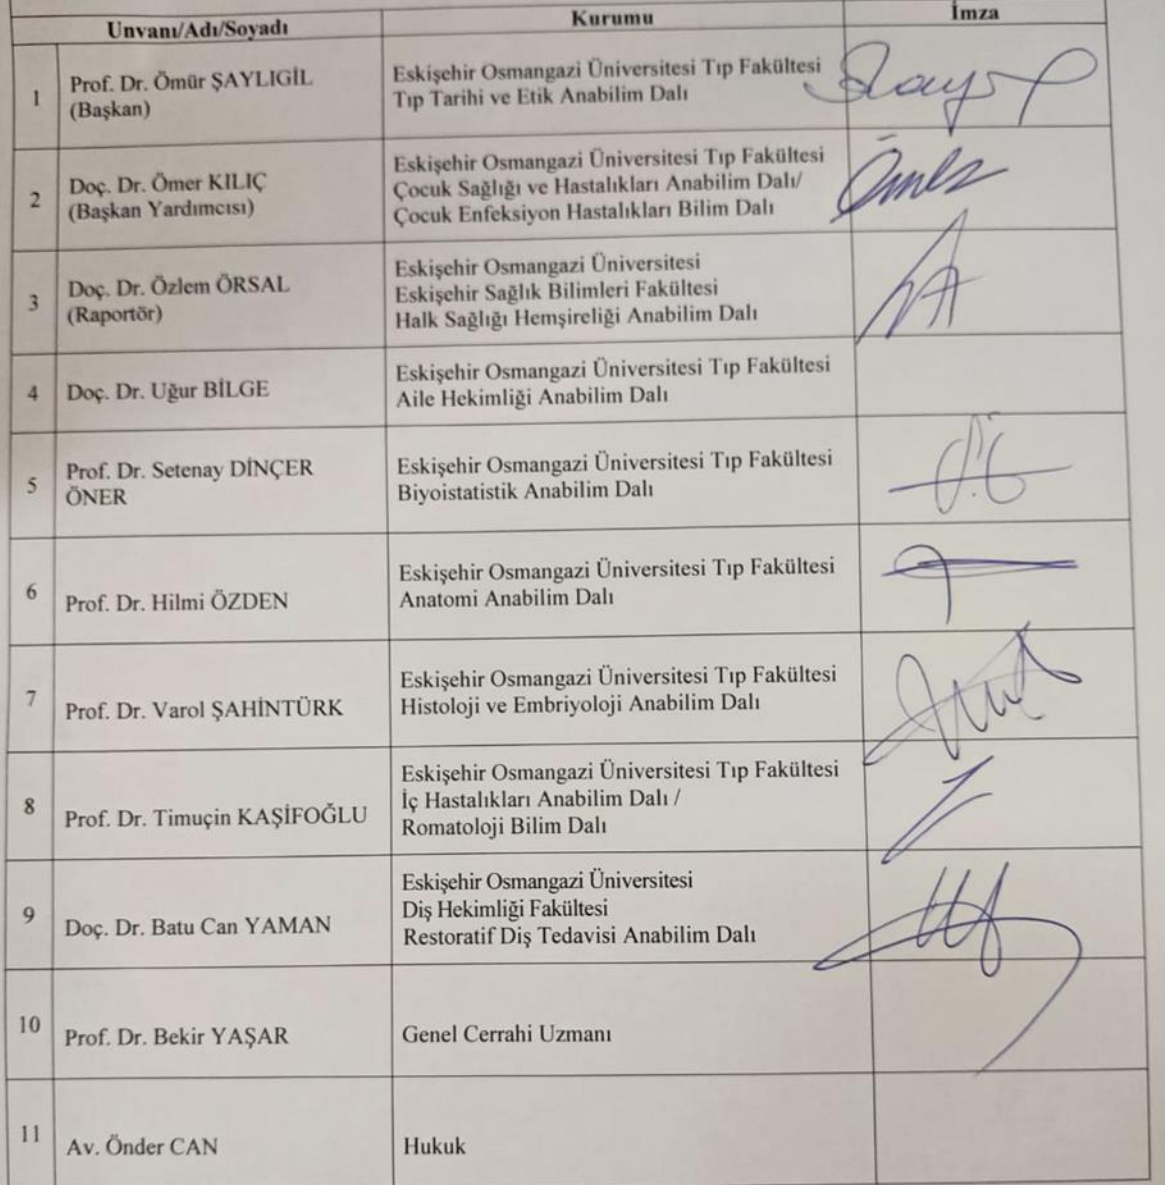 Unvanı/Adı/Soyadı
Kurumu
İmza
1
Prof. Dr. Ömür ŞAYLIGİL
(Başkan)
Eskişehir Osmangazi Üniversitesi Tıp Fakültesi
Tıp Tarihi ve Etik Anabilim Dalı
2
Doç. Dr. Ömer KILIÇ
(Başkan Yardımcısı)
Eskişehir Osmangazi Üniversitesi Tıp Fakültesi
Çocuk Sağlığı ve Hastalıkları Anabilim Dalı/
Çocuk Enfeksiyon Hastalıkları Bilim Dalı
3
Doç. Dr. Özlem ÖRSAL
(Raportör)
Eskişehir Osmangazi Üniversitesi
Eskişehir Sağlık Bilimleri Fakültesi
Halk Sağlığı Hemşireliği Anabilim Dalı
4
Doç. Dr. Uğur BİLGE
Eskişehir Osmangazi Üniversitesi Tıp Fakültesi
Aile Hekimliği Anabilim Dalı
5
Prof. Dr. Setenay DİNÇER
ÖNER
Eskişehir Osmangazi Üniversitesi Tıp Fakültesi
Biyoistatistik Anabilim Dalı
6
Prof. Dr. Hilmi ÖZDEN
Eskişehir Osmangazi Üniversitesi Tıp Fakültesi
Anatomi Anabilim Dalı
7
Prof. Dr. Varol ŞAHİNTÜRK
Eskişehir Osmangazi Üniversitesi Tıp Fakültesi
Histoloji ve Embriyoloji Anabilim Dalı
8
Prof. Dr. Timuçin KAŞİFOĞLU
Eskişehir Osmangazi Üniversitesi Tıp Fakültesi
İç Hastalıkları Anabilim Dalı /
Romatoloji Bilim Dalı
9
Doç. Dr. Batu Can YAMAN
Eskişehir Osmangazi Üniversitesi
Diş Hekimliği Fakültesi
Restoratif Diş Tedavisi Anabilim Dalı
10
Prof. Dr. Bekir YAŞAR
Genel Cerrahi Uzmanı
11
Av. Önder CAN
Hukuk